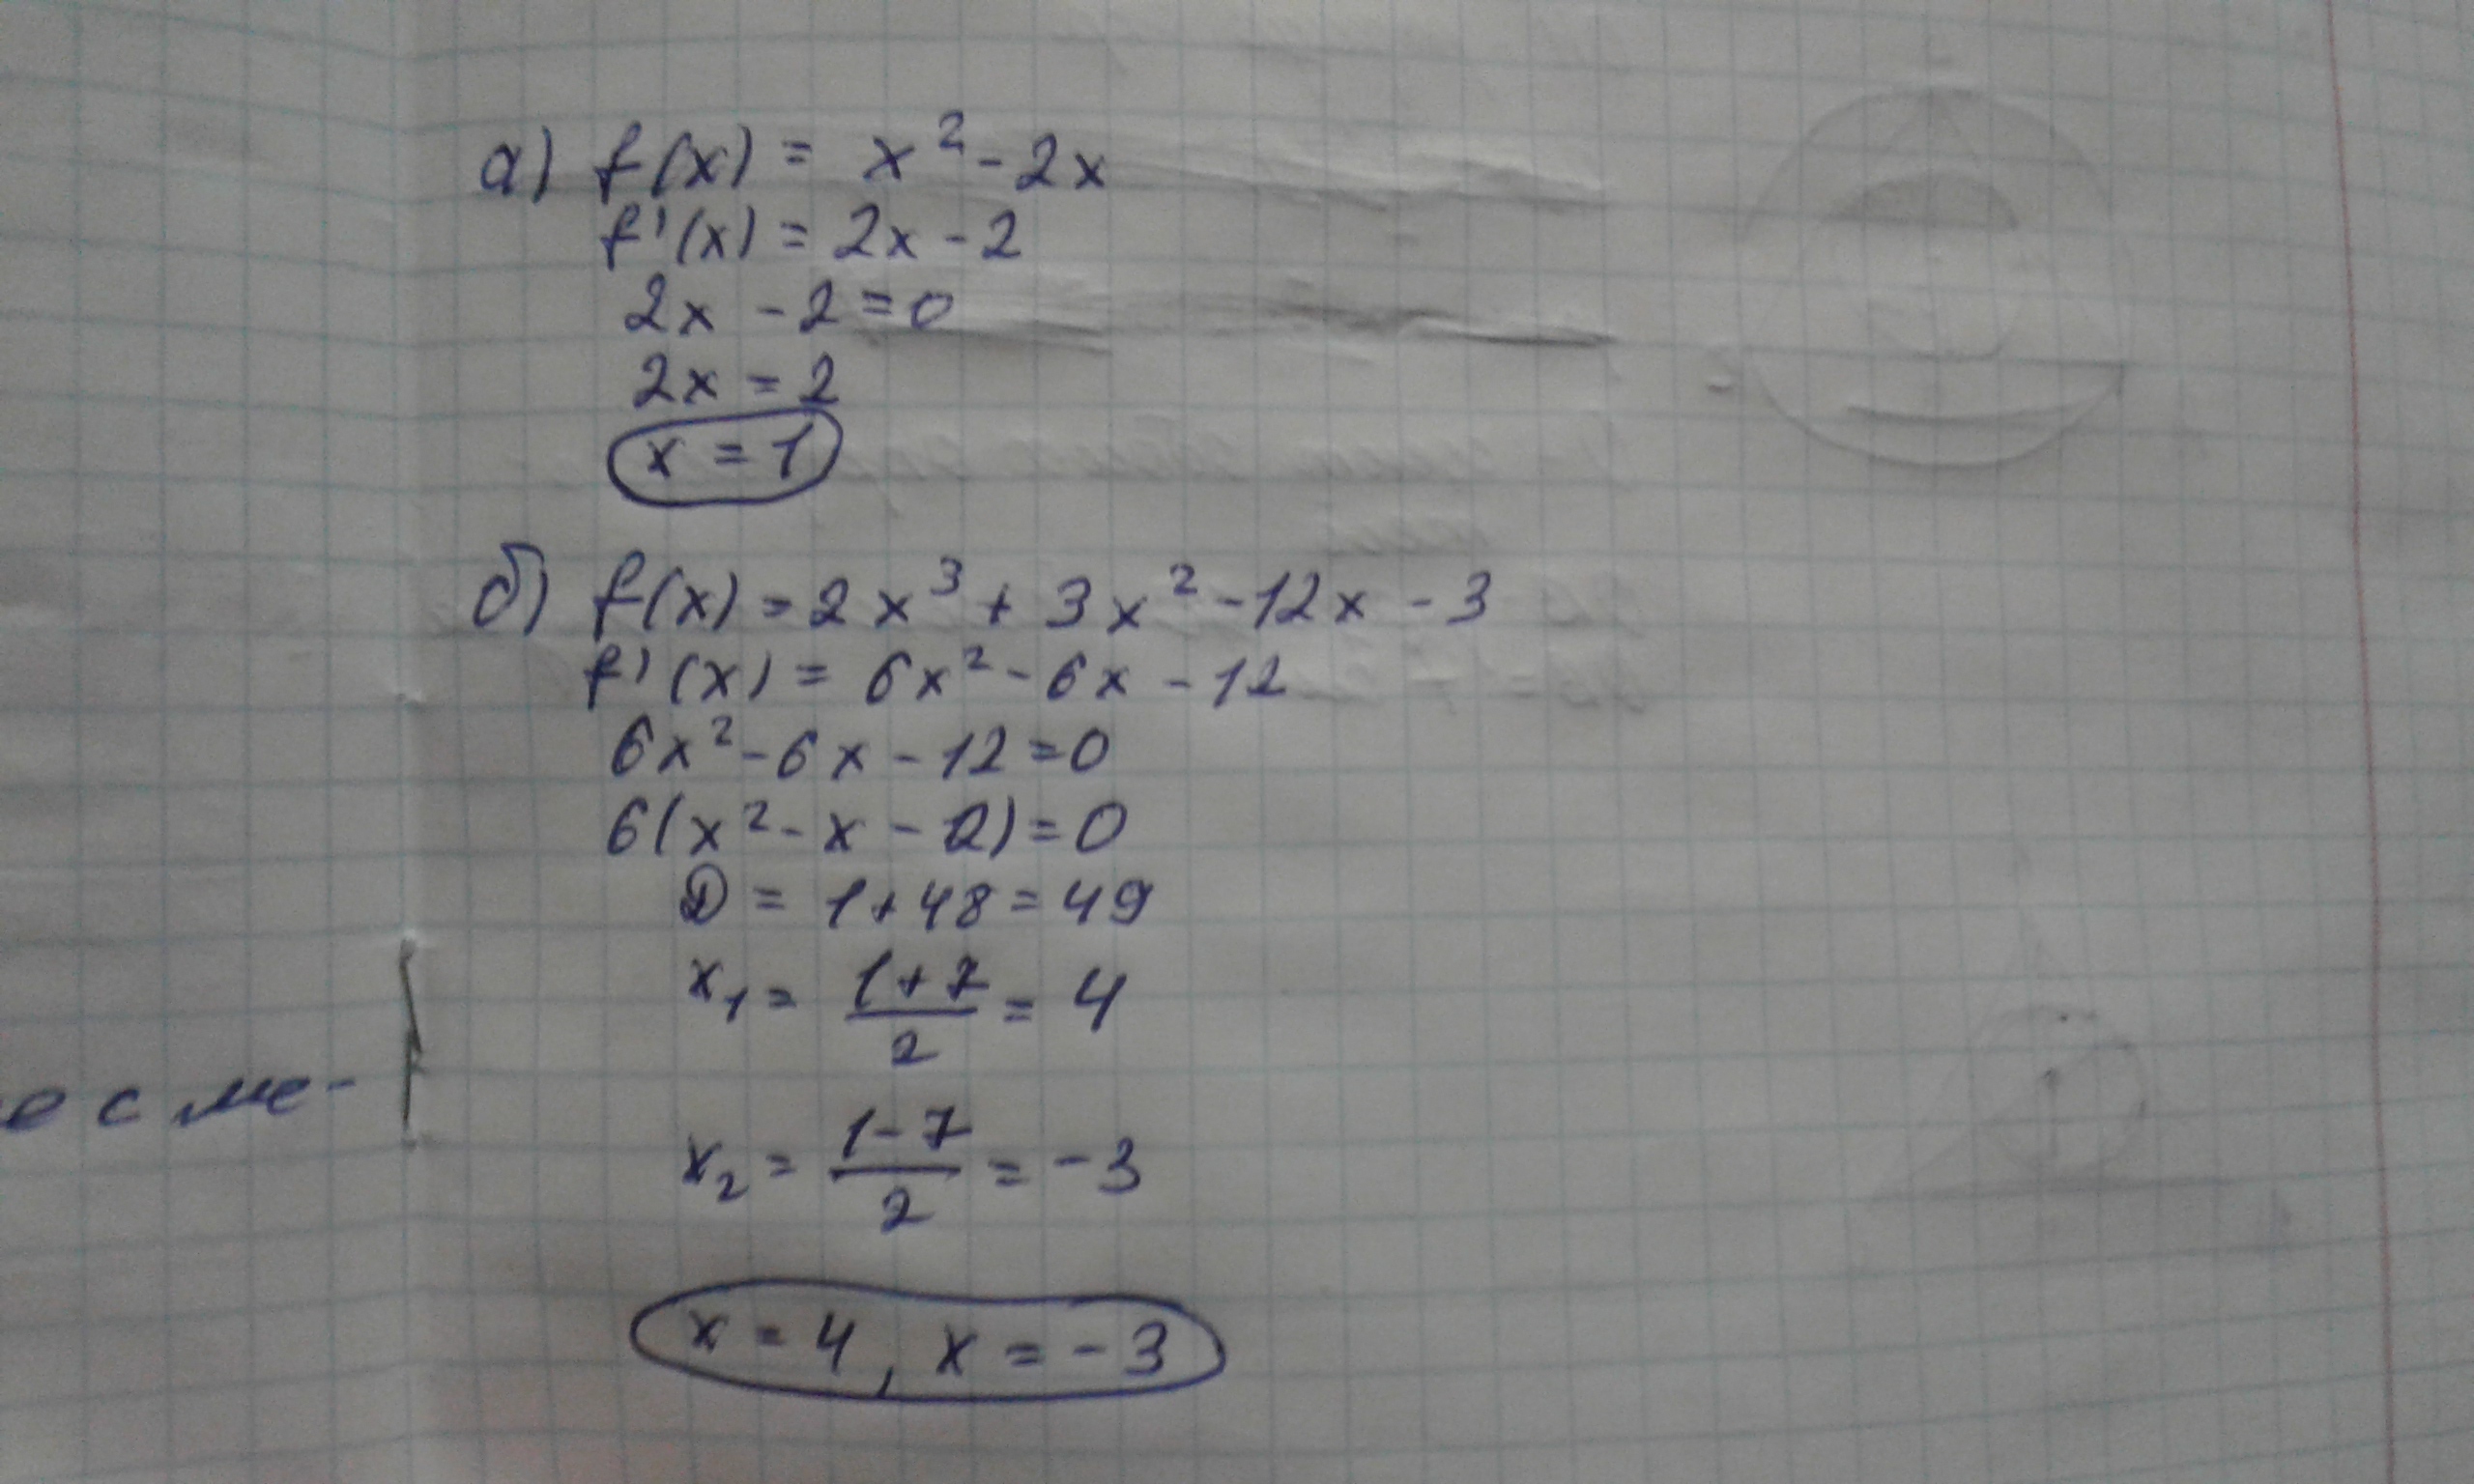 а) f(x) = x² - 2x
f'(x) = 2x - 2
2x - 2 = 0
2x = 2
x = 1
б) f(x) = 2x³ + 3x² - 12x - 3
f'(x) = 6x² - 6x - 12
6x² - 6x - 12 = 0
6(x² - x - 2) = 0
D = 1 + 48 = 49
x₁ = (1 + 7)/2 = 4
x₂ = (1 - 7)/2 = -3
x = 4, x = -3
е с ме-